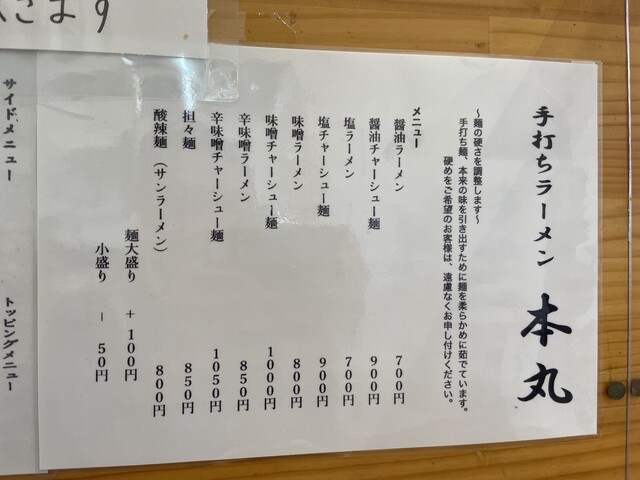 手打ちラーメン 本丸
～麺の硬さを調整します～
手打ち麺、本来の味を引き出すために麺を柔らかめに茹でています。
硬めをご希望のお客様は、遠慮なくお申し付けください。
メニュー
醤油ラーメン 700円
醤油チャーシュー麺 900円
塩ラーメン 700円
塩チャーシュー麺 900円
味噌ラーメン 800円
味噌チャーシュー麺 1000円
辛味噌ラーメン 850円
辛味噌チャーシュー麺 1050円
担々麺 850円
酸辣麺 (サンラーメン) 800円
麺大盛り + 100円
小盛り - 50円
サイドメニュー
トッピングメニュー
きます